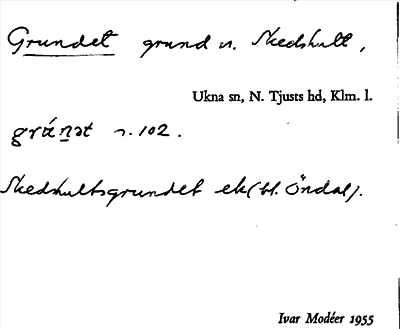 Grundet grund n. Skedshult,
Ukna sn, N. Tjusts hd, Klm. l.
grúṉət n. 102.
Skedshultsgrundet ek (bl. Öndal).
Ivar Modéer 1955